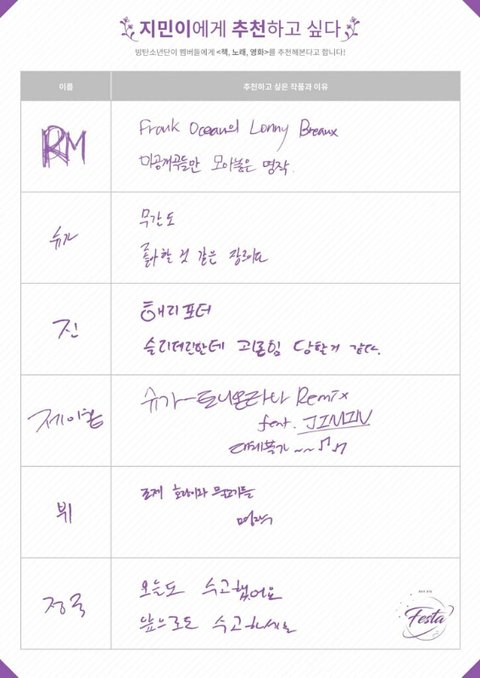 지민이에게 추천하고 싶다
방탄소년단이 멤버들에게 <책, 노래, 영화>를 추천해본다고 합니다!
이름
추천하고 싶은 작품과 이유
RM
Frank Ocean의 Lonny Breaux
미공개곡들만 모아놓은 명작.
슈가
무간도
좋아할 것 같은 장르이다
진
해리포터
슬리데린한테 괴롭힘 당할거 같다.
제이홉
슈가 - 토니몬타나 Remix
feat. JIMIN
대체불가 ~~
뷔
조제 호랑이와 물고기들
명작
정국
오늘도 수고했어요
앞으로도 수고하세요
Festa